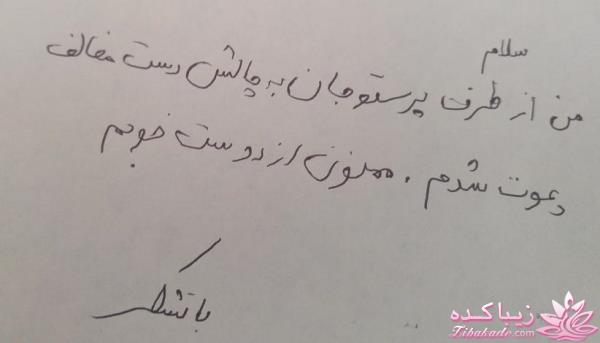 سلام
من از طرف پرستو جان به چالش دست مخالف
دعوت شدم. ممنون از دوست خوبم
با تشکر
زیباکده
Zibakade.com